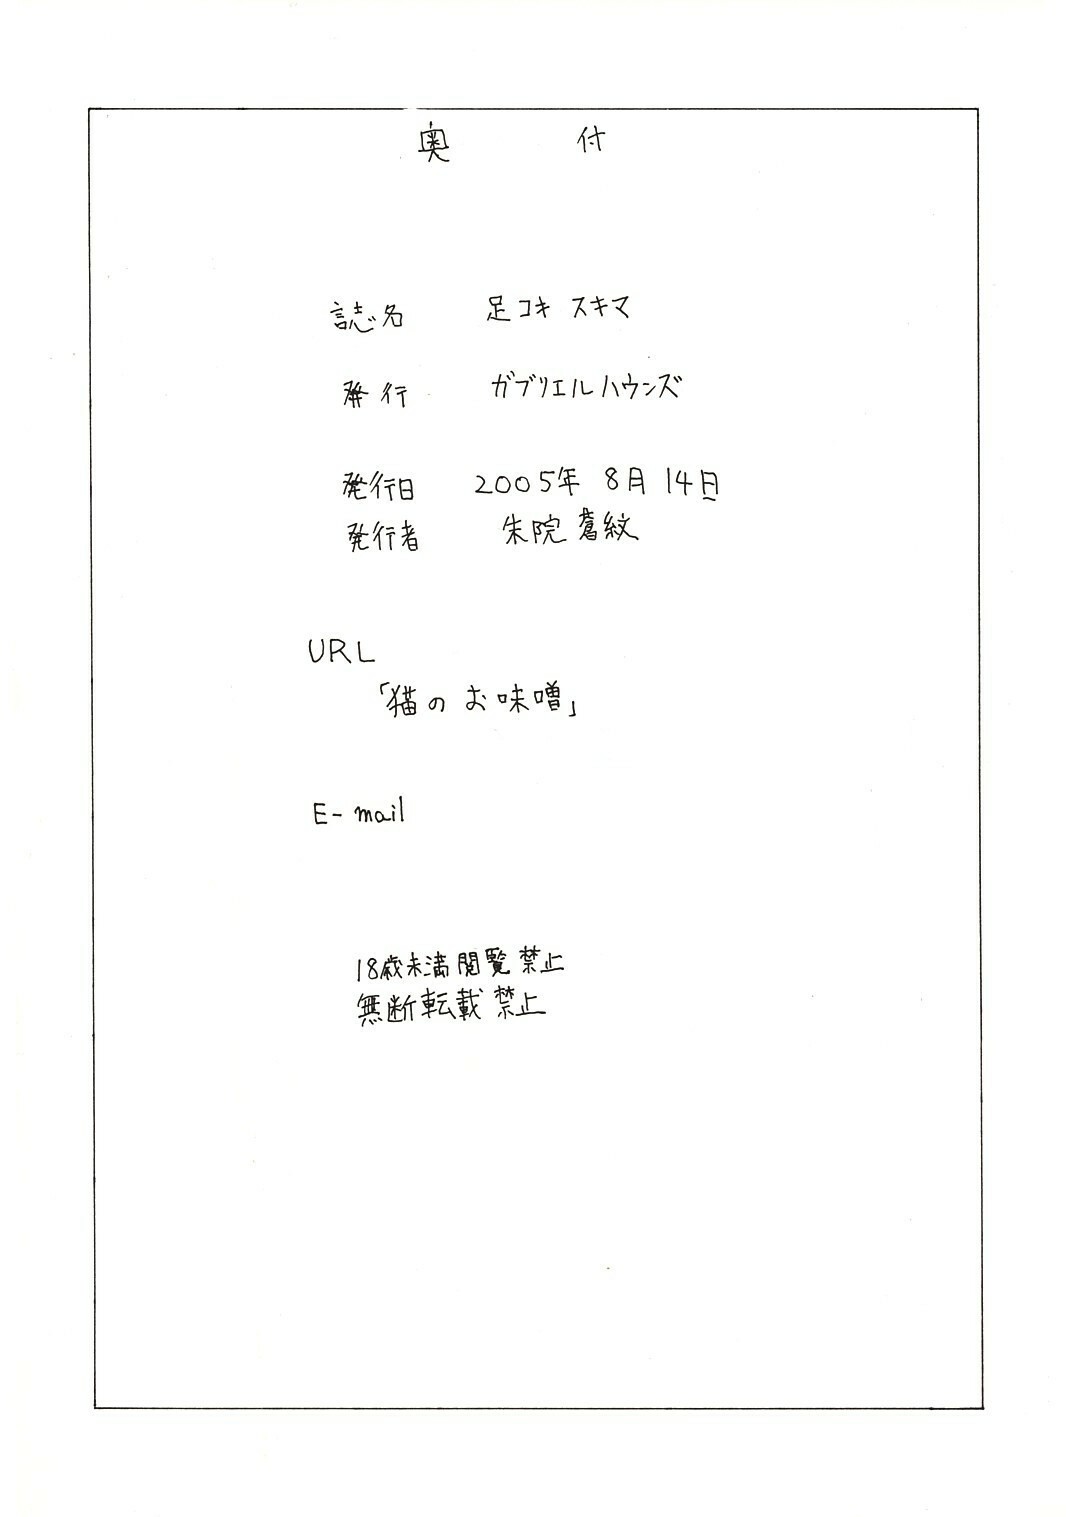 奥 付
誌名 足コキ スキマ
発行 ガブリエルハウンズ
発行日 2005年 8月 14日
発行者 朱院 蒼紋
URL
「猫の お味噌」
E-mail
18歳未満閲覧禁止
無断転載禁止